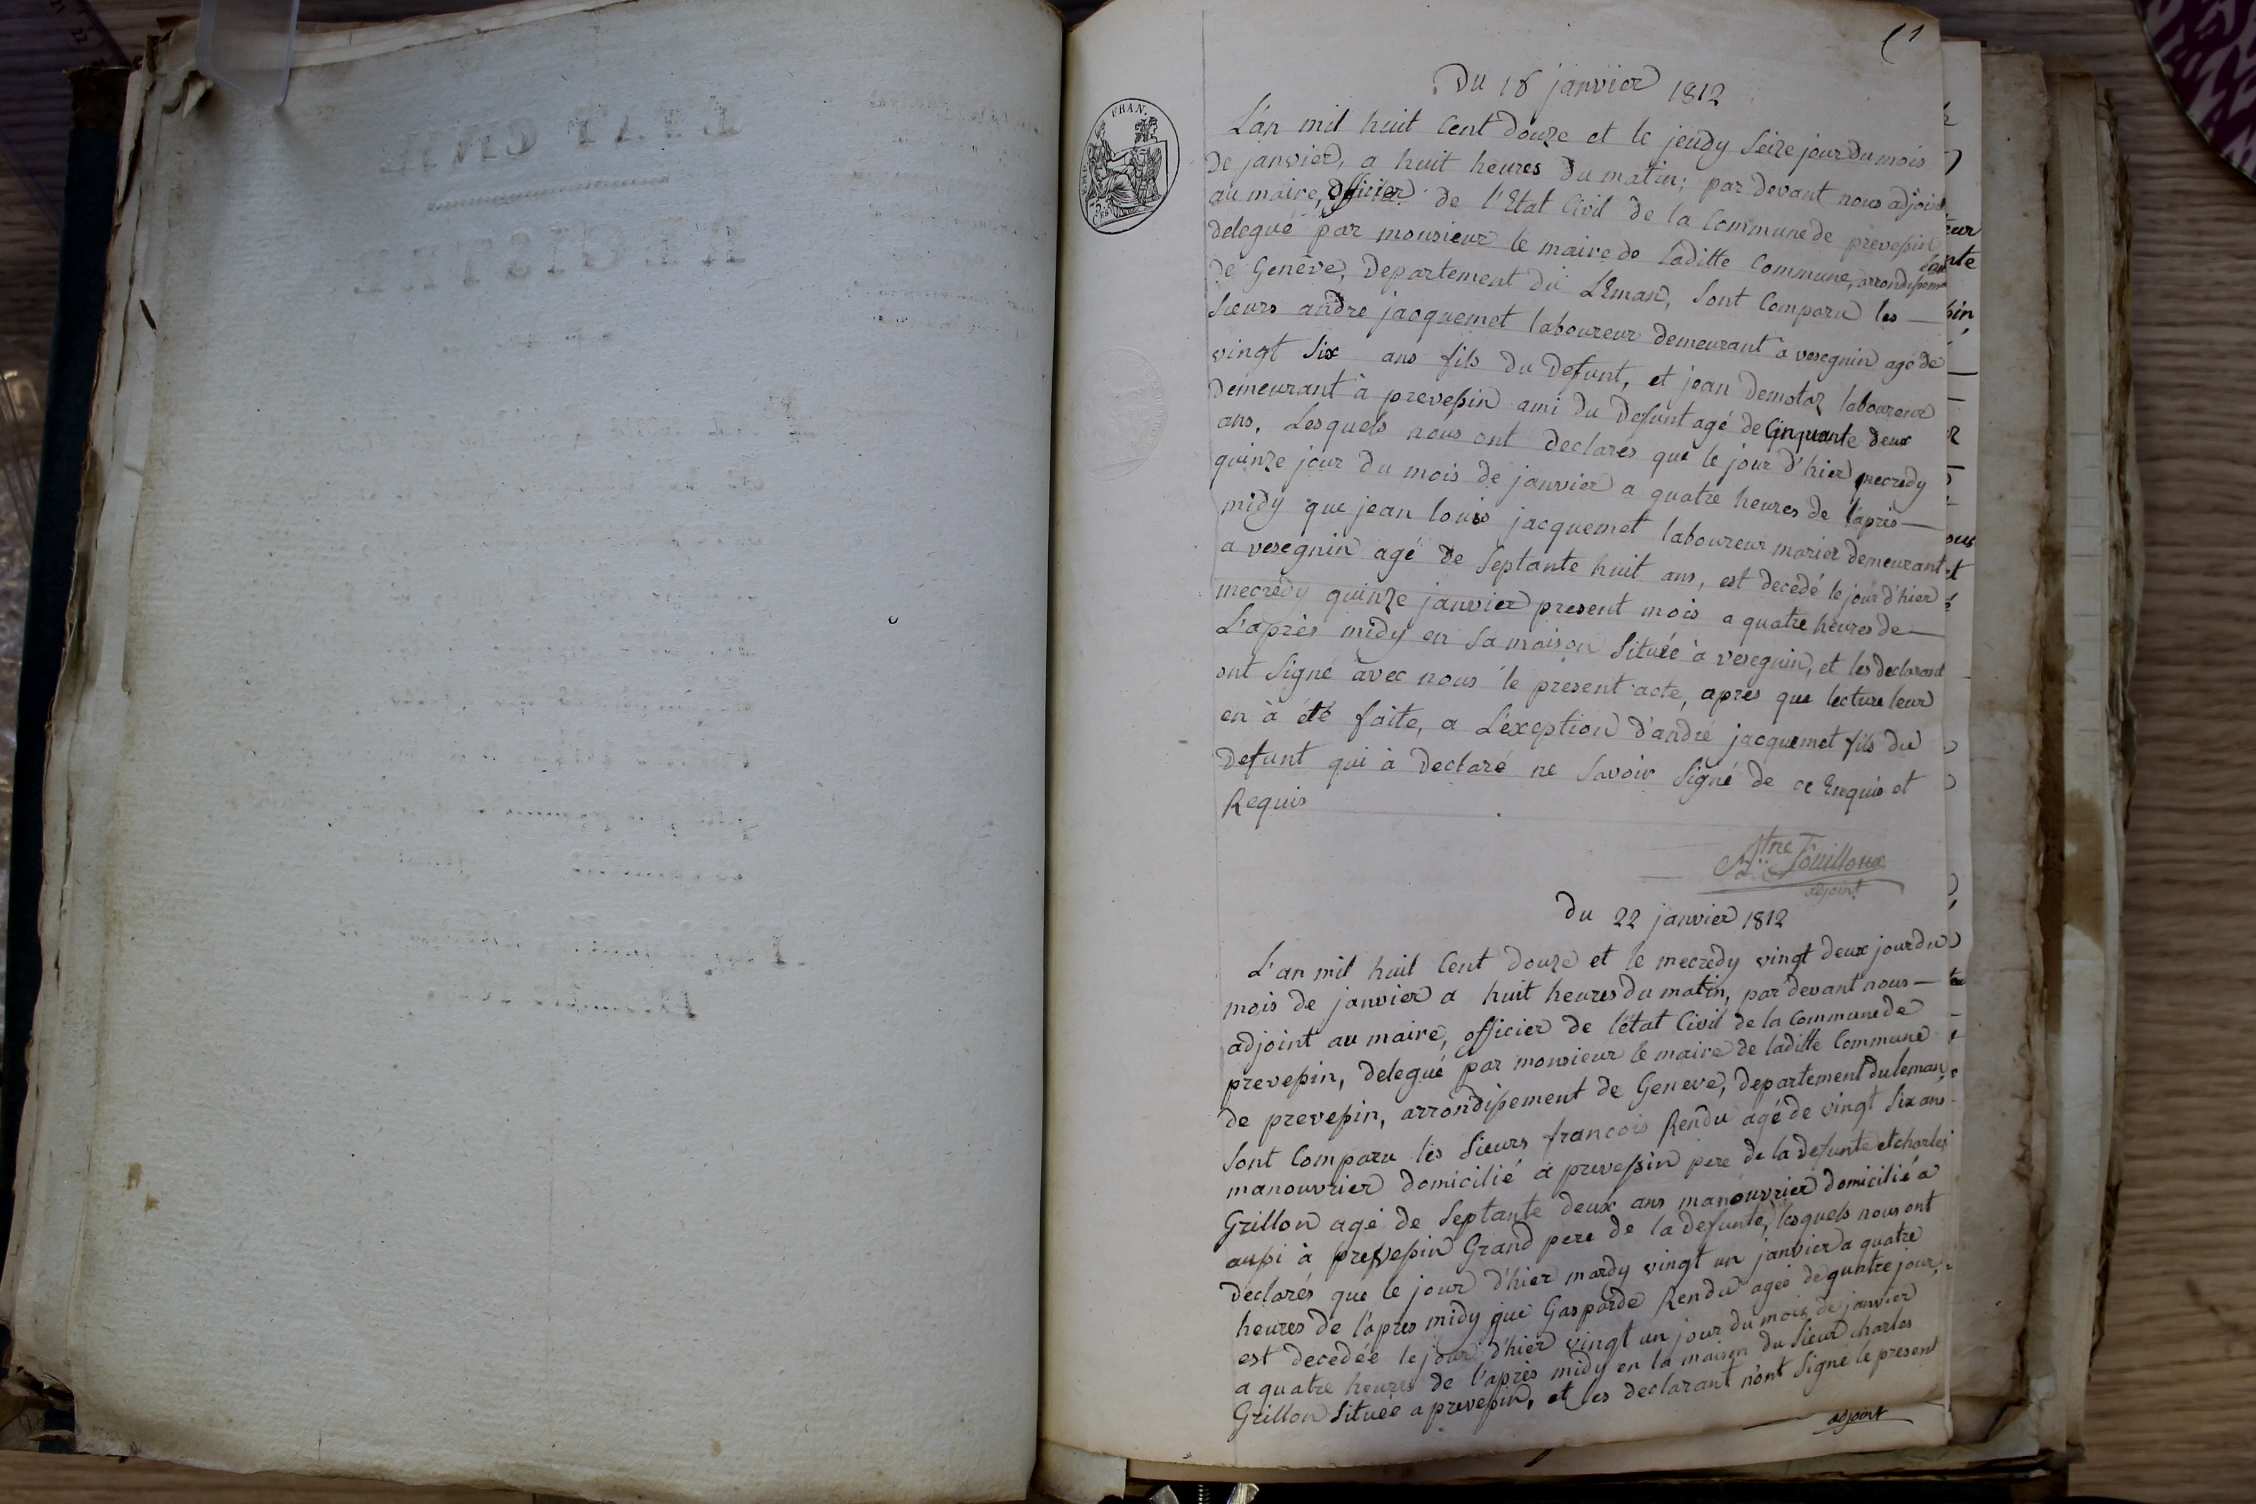 (1
Du 16 janvier 1812
L'an mil huit Cent douze et le jeudy Seize jour du mois
de janvier, a huit heures du matin; par devant nous adjoint
au maire, officier de l'Etat Civil de la Commune de preveßin
delegué par monsieur le maire de laditte Commune, arrondißemt
de Genève, Departement du Léman, Sont Comparu les —
Sieurs andré jacquemet laboureur demeurant a vesegnin agé de
vingt Six ans fils du defunt, et jean demotaz laboureur
demeurant à preveßin ami du defunt agé de Cinquante deux
ans. Lesquels nous ont declarés que le jour d'hier mecredy
quinze jour du mois de janvier a quatre heures de l'après —
midy que jean louis jacquemet laboureur marier demeurant
a vesegnin agé de Septante huit ans, est decedé le jour d'hier
mecredy quinze janvier present mois a quatre heures de —
L'après midy en Sa maison Située à vesegnin, et les declarant
ont Signé avec nous le present acte, après que lecture leur
en à été faite, a L'exception d'andré jacquemet fils du
defunt qui à declaré ne Savoir Signé de ce Enquis et
Requis
adjoint
du 22 janvier 1812
L'an mil huit Cent douze et le mecredy vingt deux jour du
mois de janvier a huit heures du matin, par devant nous —
adjoint au maire, officier de l'état Civil de la Commune de
preveßin, delegué par monsieur le maire de laditte Commune
de preveßin, arrondißement de Geneve, departement du leman,
Sont Comparu les Sieurs francois Rendu agé de vingt Six ans
manouvrier domicilié a preveßin pere de la defunte et charles
Grillon agé de Septante deux ans manouvrier domicilié a
außi à preveßin Grand pere de la defunte, lesquels nous ont
declarés que le jour d'hier mardy vingt un janvier a quatre
heures de l'apres midy que Gasparde Rendu ageé de quatre jour,
est decedée le jour d'hier vingt un jour du mois de janvier
a quatre heures de l'après midy en la maison du Sieur charles
Grillon Située a preveßin, et les declarant n'ont Signé le present
adjoint